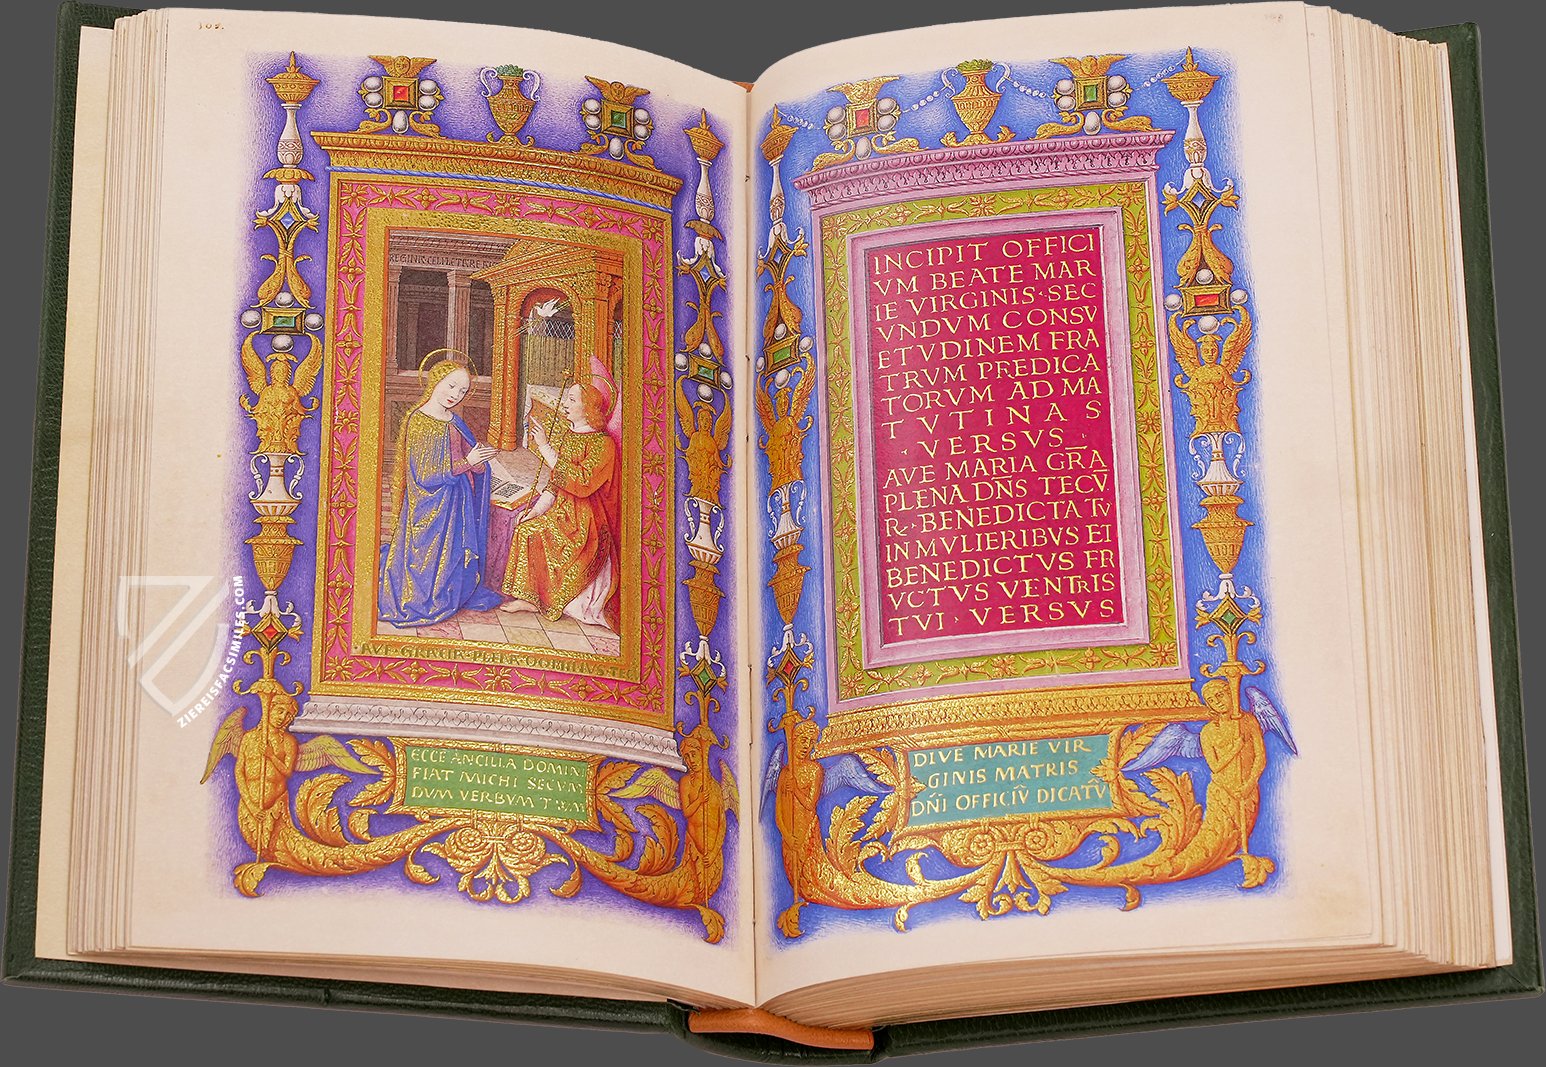 REGINA CELI LETERE
AVE GRATIA PLENA DOMINVS
ECCE ANCILLA DOMIN
FIAT MICHI SECVN
DVM VERBVM TVVM
INCIPIT OFFICI
VM BEATE MAR
IE VIRGINIS·SEC
VNDVM CONSV
ETVDINEM FRA
TRVM PREDICA
TORVM AD MA
TVTINAS
·VERSVS·
AVE MARIA GRA̅
PLENA DN̅S TECV̅
R̷· BENEDICTA TV
IN MVLIERIBVS ET
BENEDICTVS FR
VCTV̅S VENTRIS
TVI · VERSVS
DIVE MARIE VIR
GINIS MATRIS
DN̅I OFFICIV̅ DICATV̅
ZIEREISFACSIMILES.COM